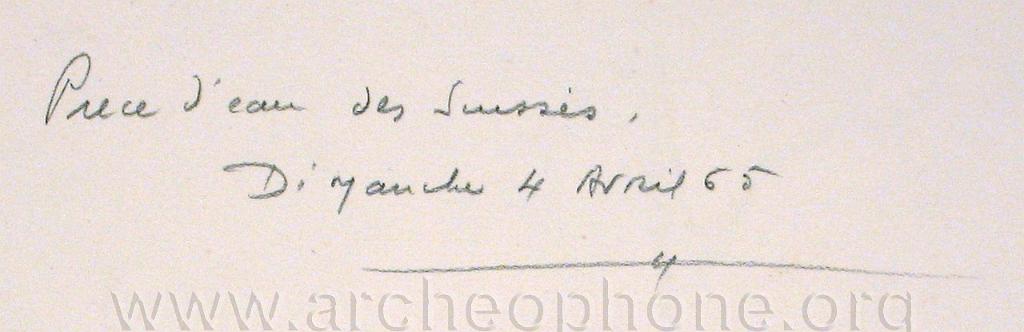 Pièce d'eau des Suisses.
Dimanche 4 Avril 65
4
www.archeophone.org